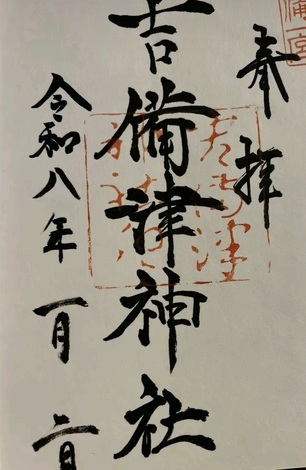 奉拝
吉備津神社
令和八年一月二日